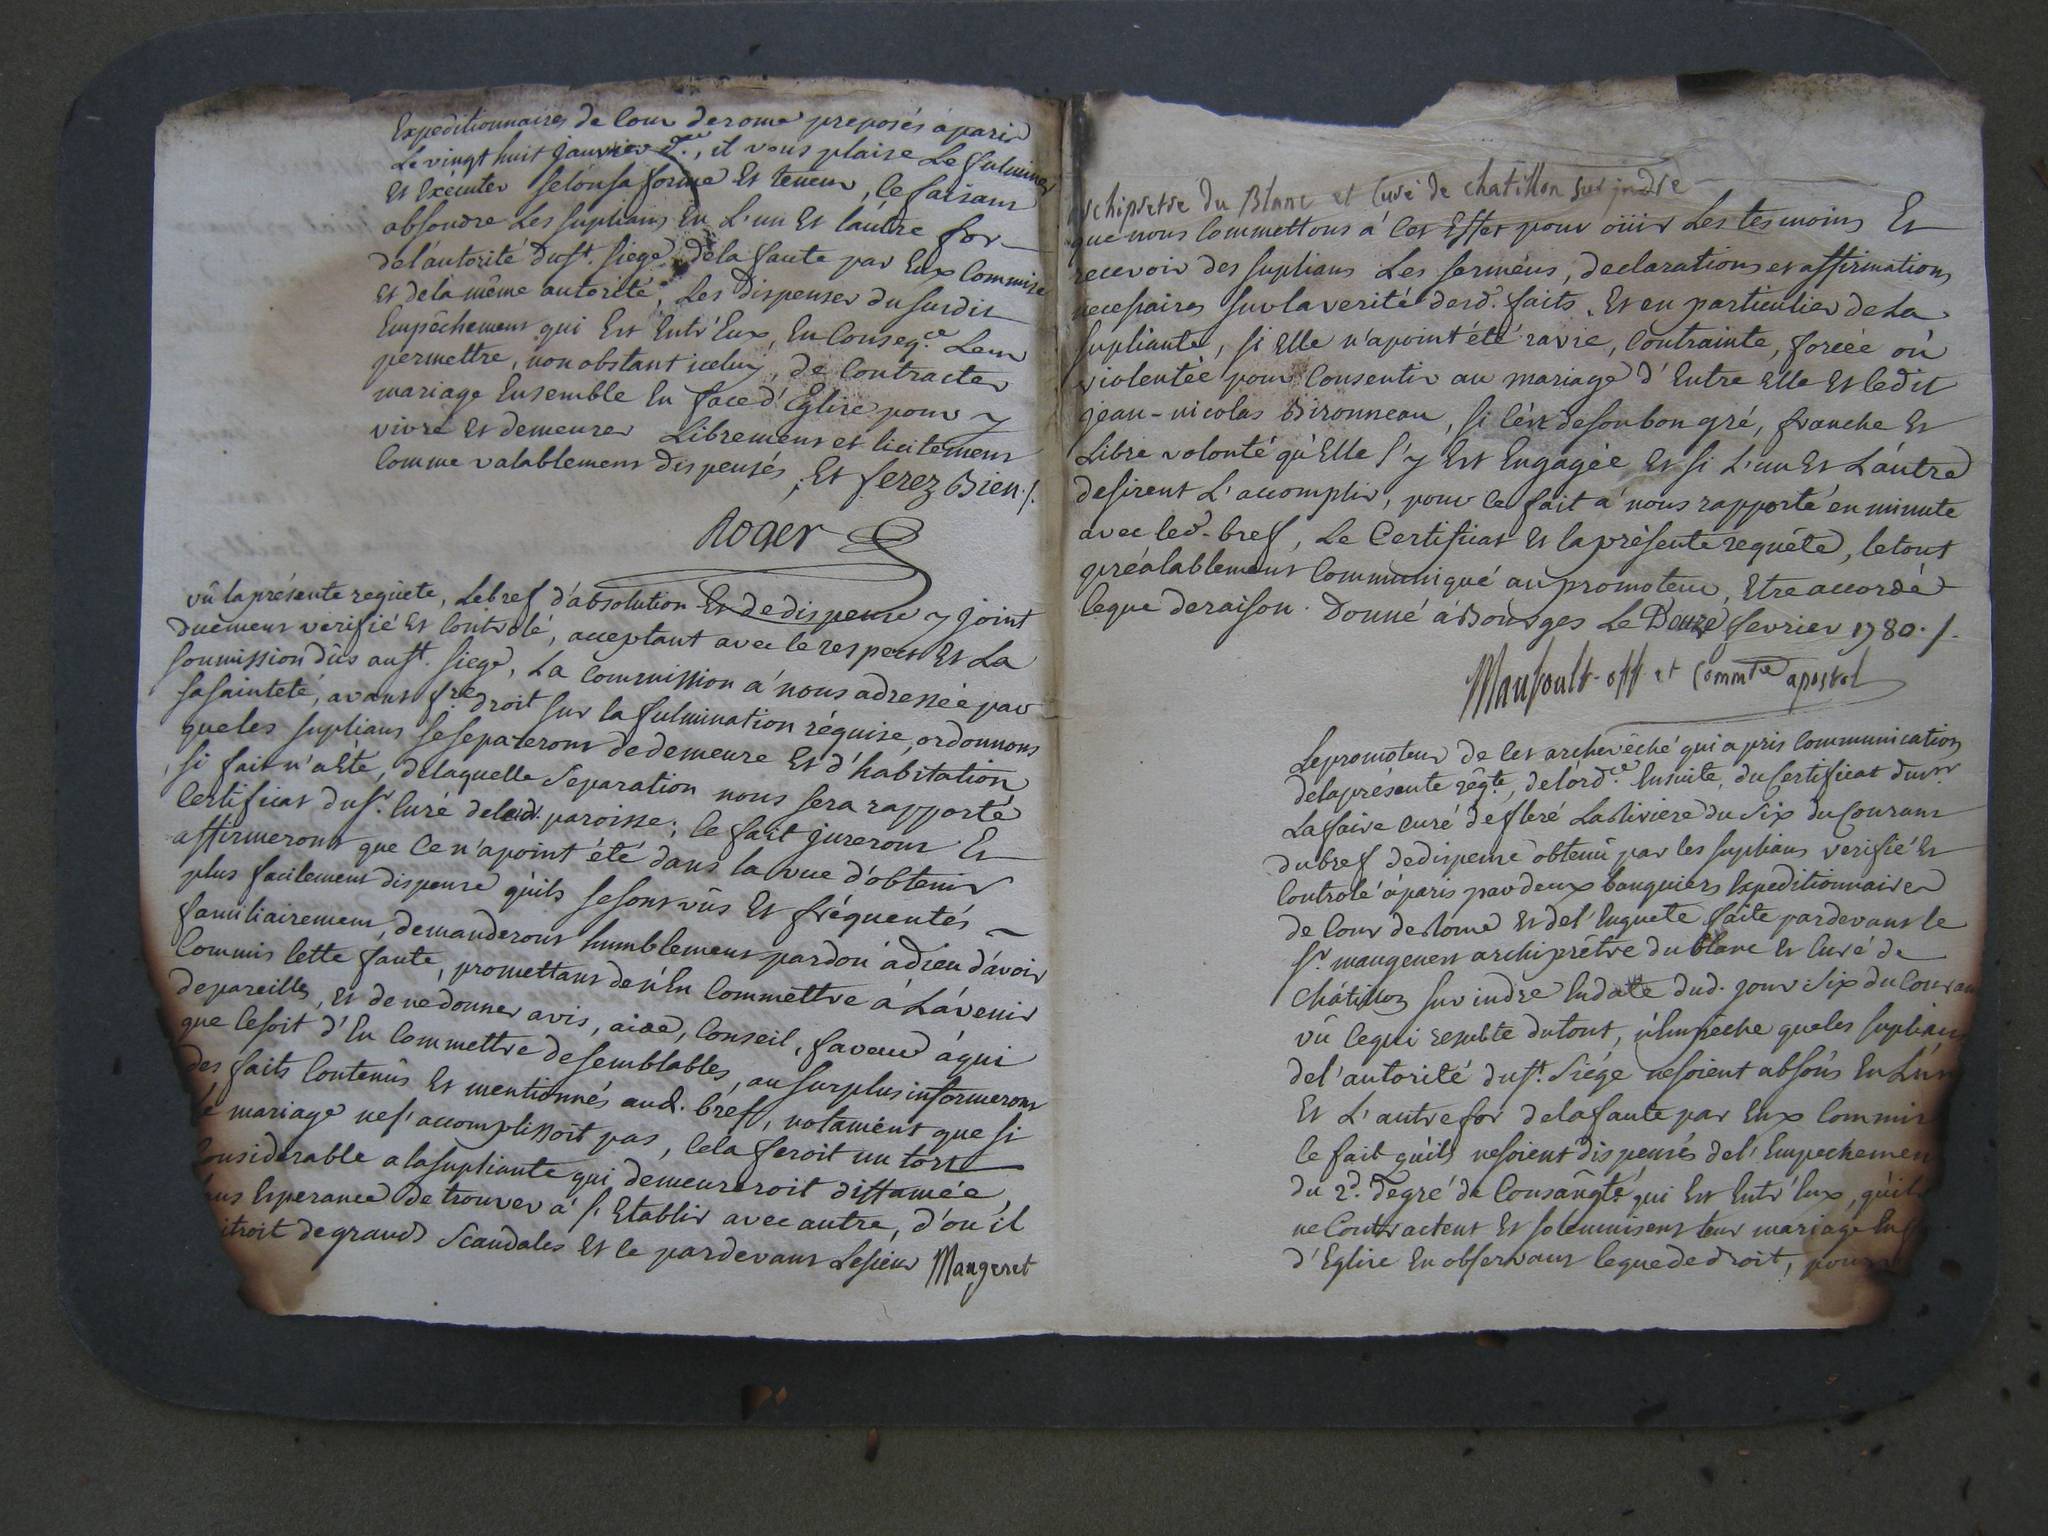 Expeditionnaires de Cour derome preposés áparis
Le vingt huit Janvier d.er, il vous plaise Le fulminer
Et Exécuter selonsa forme Et teneur, Ce faisant
absoudre Les suplians En L'un Et láutre for
del'autorité dust. Siege, dela faute par Eux Commise
Et delà même autorité, Les dispenser dususdit
Empêchement qui Est Entr'Eux, En Conseq.ce Leur
permettre, nonobstant icelui, de Contracter
mariage Ensemble En face d'Eglise pour y
vivre Et demeurer Librement et licitement
Comme valablement dispensés, Et ferez Bien./.
Roger
vû laprésente requete, Lebref d'absolution Et dedispense y joint
duement verifié Et Controlé, acceptant avec le respect Et La
soumission dûs aust. Siege, La Commission á nous adressée par
sasainteté, avant f.re droit sur la fulmination réquise, ordonnons
queles suplians seseparerons dedemeure Et d'habitation
, si fait n'aété, delaquelle Separation nous sera rapporté
Certificat dusr. Curé delad. paroisse; Ce fait jureront Et
affirmeront que Ce n'apoint été dans la vue d'obtenir
plus facilement dispense qúils sesont vûs Et fréquentés
familiairement, demanderont humblement pardon ádieu d'avoir
Commis Cette faute, promettant de n'En Commettre á Lávenir
depareilles, Et de nedonner avis, aide, Conseil, faveur áqui
que Cesoit d'En Commettre desemblables, au surplus informeront
des faits Contenûs Et mentionnés aud. bref, notamént que si
le mariage nes'accomplissoit pas, Cela feroit un tort
Considerable alasupliante qui demeureroit diffamée,
sans Esperance de trouver á s'Etablir avec autre, d'ou il
naitroit degrands Scandales Et ce pardevant Lesieur Maugenet
archipretre du Blanc et Curé de chatillon sur jndre
que nous Commettons á Cet Effet pour oüir Les tesmoins Et
recevoir des suplians Les sermens, declarations et affirmations
necessaires sur la verité desd. faits, Et en particulier de La
supliante, si Elle n'apoint été ravie, Contrainte, forcée oú
violentée pour Consentir au mariage d'Entre Elle Et Ledit
jean-nicolas Bironneau, si Cést desonbon gré, franche Et
Libre volonté qúElle s'y Est Engagée Et si L'un Et Láutre
desirent L'accomplir, pour le fait á nous rapporté en minute
avec led. bref, Le Certificat Et la présente requéte, letout
préalablement Communiqué au promoteur, Etre accordé
Ceque deraison. Donné á Bourges Le Deuze fevrier 1780./.
Mausoult off et Commre apostol
Lepromoteur de Cet archevêché qui a pris Communication
delaprésente rêq.te, del'ord.ce Ensuite, du Certificat dusr
Lafaire curé defleré Lariviere du Six du Courant
dubref dedispense obtenû par les suplians verifié Et
Controlé áparis par deux banquiers Expeditionnaires
de Cour de Rome Et del'Enquete faite pardevant le
Sr. maugenest archiprêtre du blanc Et Curé de
Châtillon sur indre En date dud. jour Six du Courant
vû Cequi resulte dutout, n'Empêche queles suplians
del'autorité dust. Siége nesoient absoús En L'un
Et L'autre for delafaute par Eux Commise
Ce fait qúils nesoient dispensés del'Empechement
du 2d. degré de Consangté qui Est Entr'Eux, qúils
ne Contractent Et solennisent leur mariage En
d'Eglise En observant Cequedédroit, pour